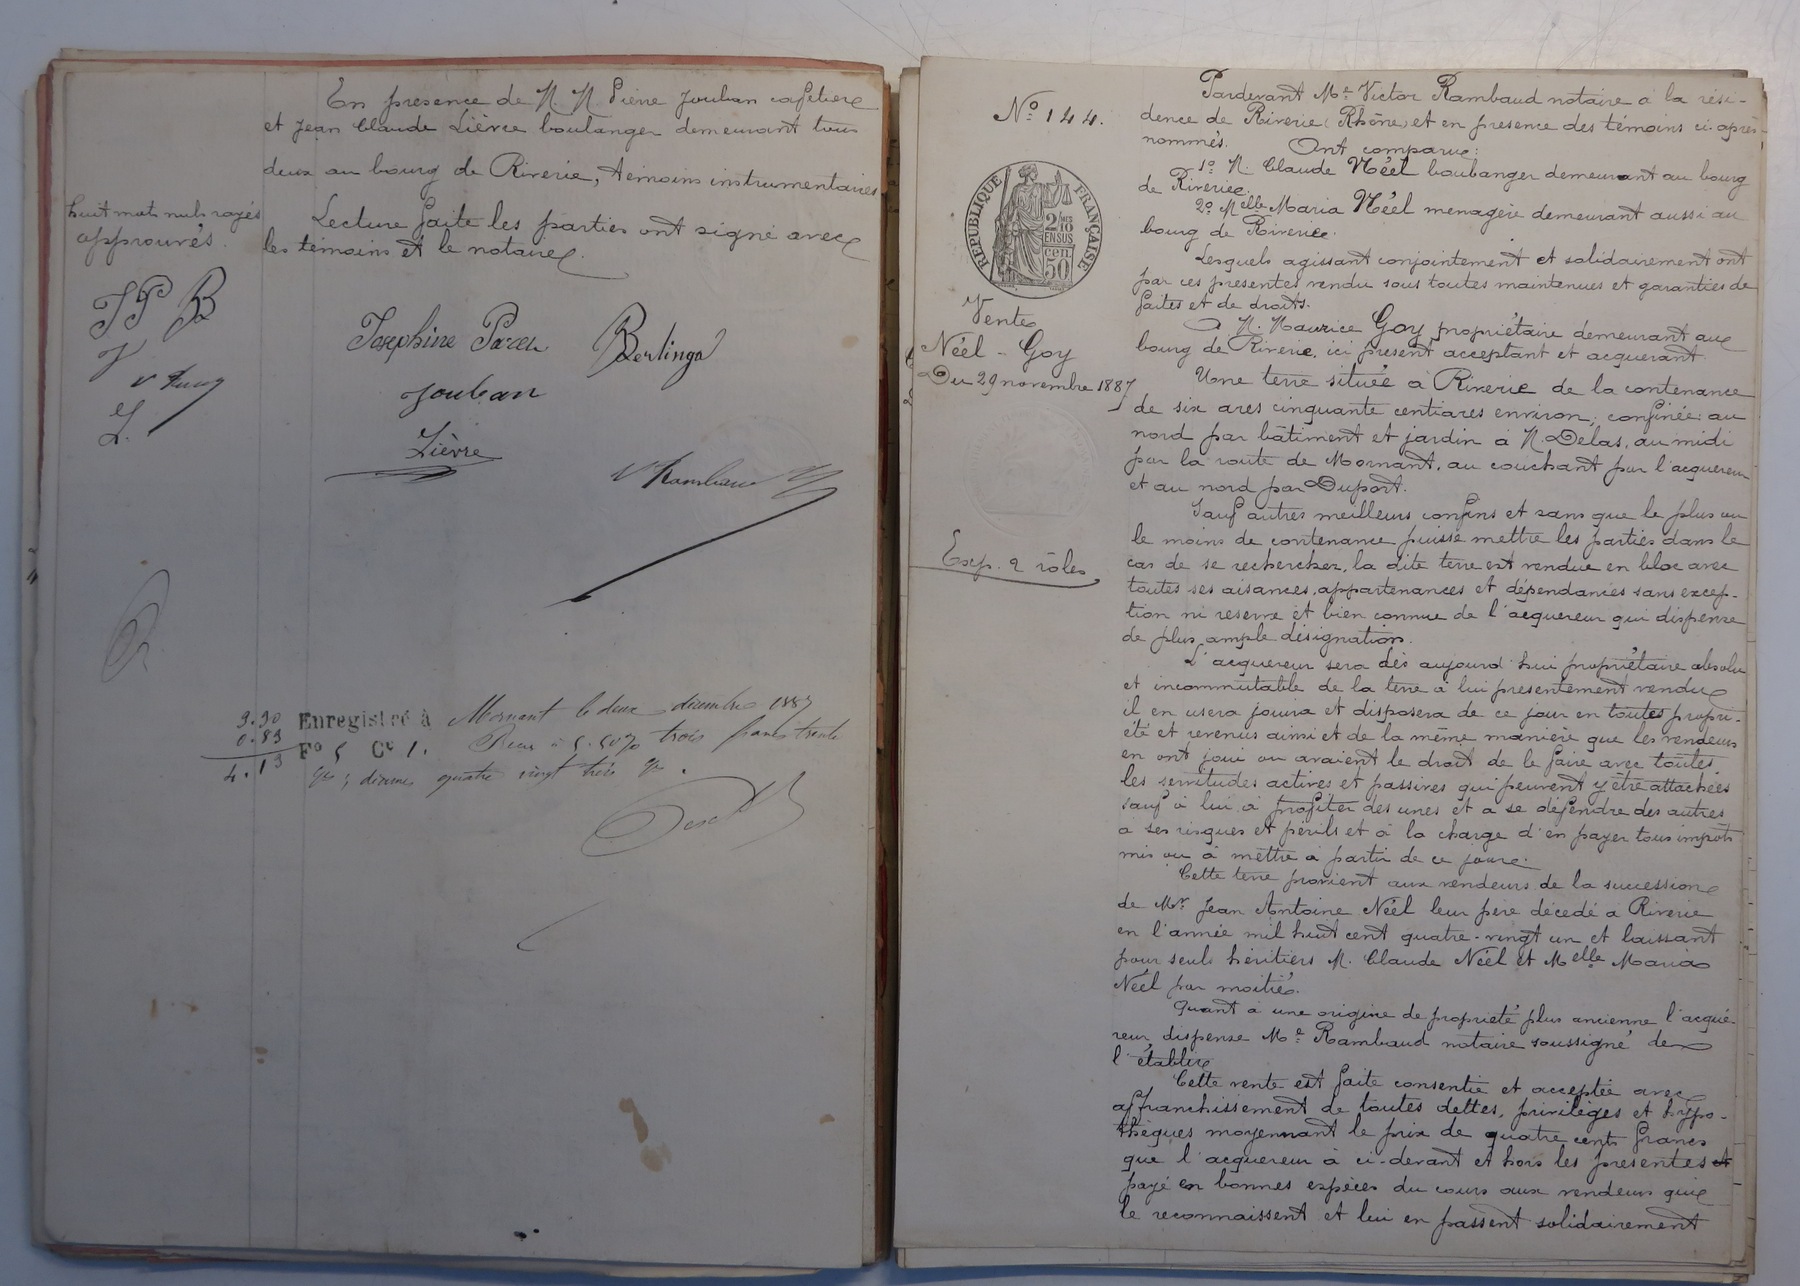 En presence de M. M. Pierre Jouban cafetiere
et Jean Claude Lièvre boulanger demeurant tous
deux au bourg de Riverie, témoins instrumentaires
huit mots nuls rayés
approuvés.
Lecture faite les parties ont signé avec
les témoins et le notaire.
JP B
J
L.
Josephine Berlinga
Jouban
Lièvre
V Rambaud
3.30
0.83
4.13
Enregistré à Mornant le deux décembre 1887
Fo 5 Ce 1. Reçu à 5.50% trois francs trente
; décimes quatre vingt trois
No 144.
REPUBLIQUE FRANÇAISE
2/10 EN SUS
50 cen
Vente
Néel - Goy
Du 29 novembre 1887
Exp. 2 rôles
Pardevant Me Victor Rambaud notaire à la rési-
dence de Riverie (Rhône) et en presence des témoins ci-après
nommés. Ont comparu:
1o M. Claude Néel boulanger demeurant au bourg
de Riverie.
2o Melle Maria Néel menagère demeurant aussi au
bourg de Riverie.
Lesquels agissant conjointement et solidairement ont
par ces presentes vendu sous toutes maintenues et garanties de
faites et de droits.
A M. Maurice Goy propriétaire demeurant au
bourg de Riverie ici présent acceptant et acquerant.
Une terre située à Riverie de la contenance
de six ares cinquante centiares environ, confinée: au
nord par bâtiment et jardin à M. Delas, au midi
par la route de Mornant, au couchant par l'acquereur
et au nord par Dupont.
Sauf autres meilleurs confins et sans que le plus ou
le moins de contenance puisse mettre les parties dans le
cas de se rechercher, la dite terre est vendue en bloc avec
toutes ses aisances, appartenances et dépendances sans excep-
tion ni reserve et bien connue de l'acquereur qui dispense
de plus ample désignation.
L'acquereur sera dès aujourd'hui propriétaire absolu
et incommutable de la terre à lui presentement vendue
il en usera jouira et disposera de ce jour en toutes propri-
été et revenus ainsi et de la même maniere que les vendeurs
en ont joui ou avaient le droit de le faire avec toutes
les servitudes actives et passives qui peuvent y être attachées
sauf à lui à profiter des unes et à se défendre des autres
a ses risques et périls et à la charge d'en payer tous impots
mis ou à mettre à partir de ce jour.
Cette terre provient aux vendeurs de la succession
de Mr Jean Antoine Néel leur père décédé à Riverie
en l'année mil huit cent quatre-vingt un et laissant
pour seuls héritiers M. Claude Néel et Melle Maria
Néel par moitié.
Quant à une origine de propriété plus ancienne l'acqué-
reur dispense Me Rambaud notaire soussigné de
l'établir
Cette vente est faite consentie et acceptée avec
affranchissement de toutes dettes, privilèges et hypo-
thèques moyennant le prix de quatre cents francs
que l'acquereur à ci-devant et hors les presentes et
payé en bonnes espèces du cours aux vendeurs qui
le reconnaissent et lui en passent solidairement